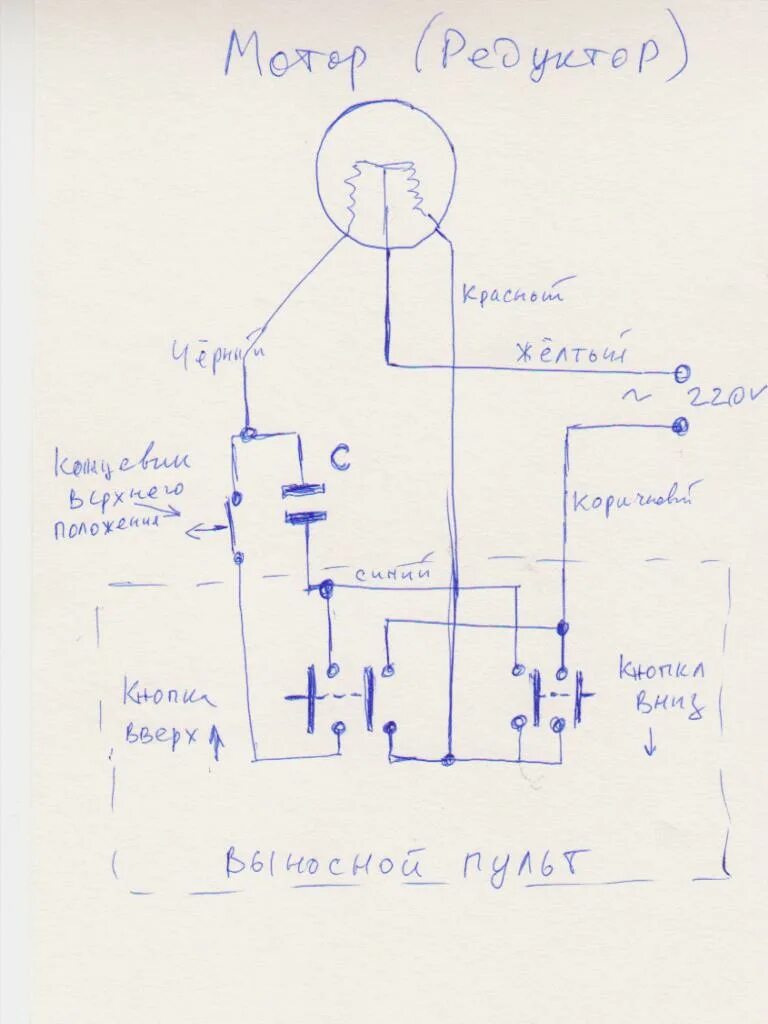 Мотор (Редуктор)
Красный
Чёрный
Жёлтый
~ 220V
Концевик
верхнего
положения
C
Коричневый
синий
Кнопка
вверх
Кнопка
вниз
Выносной пульт